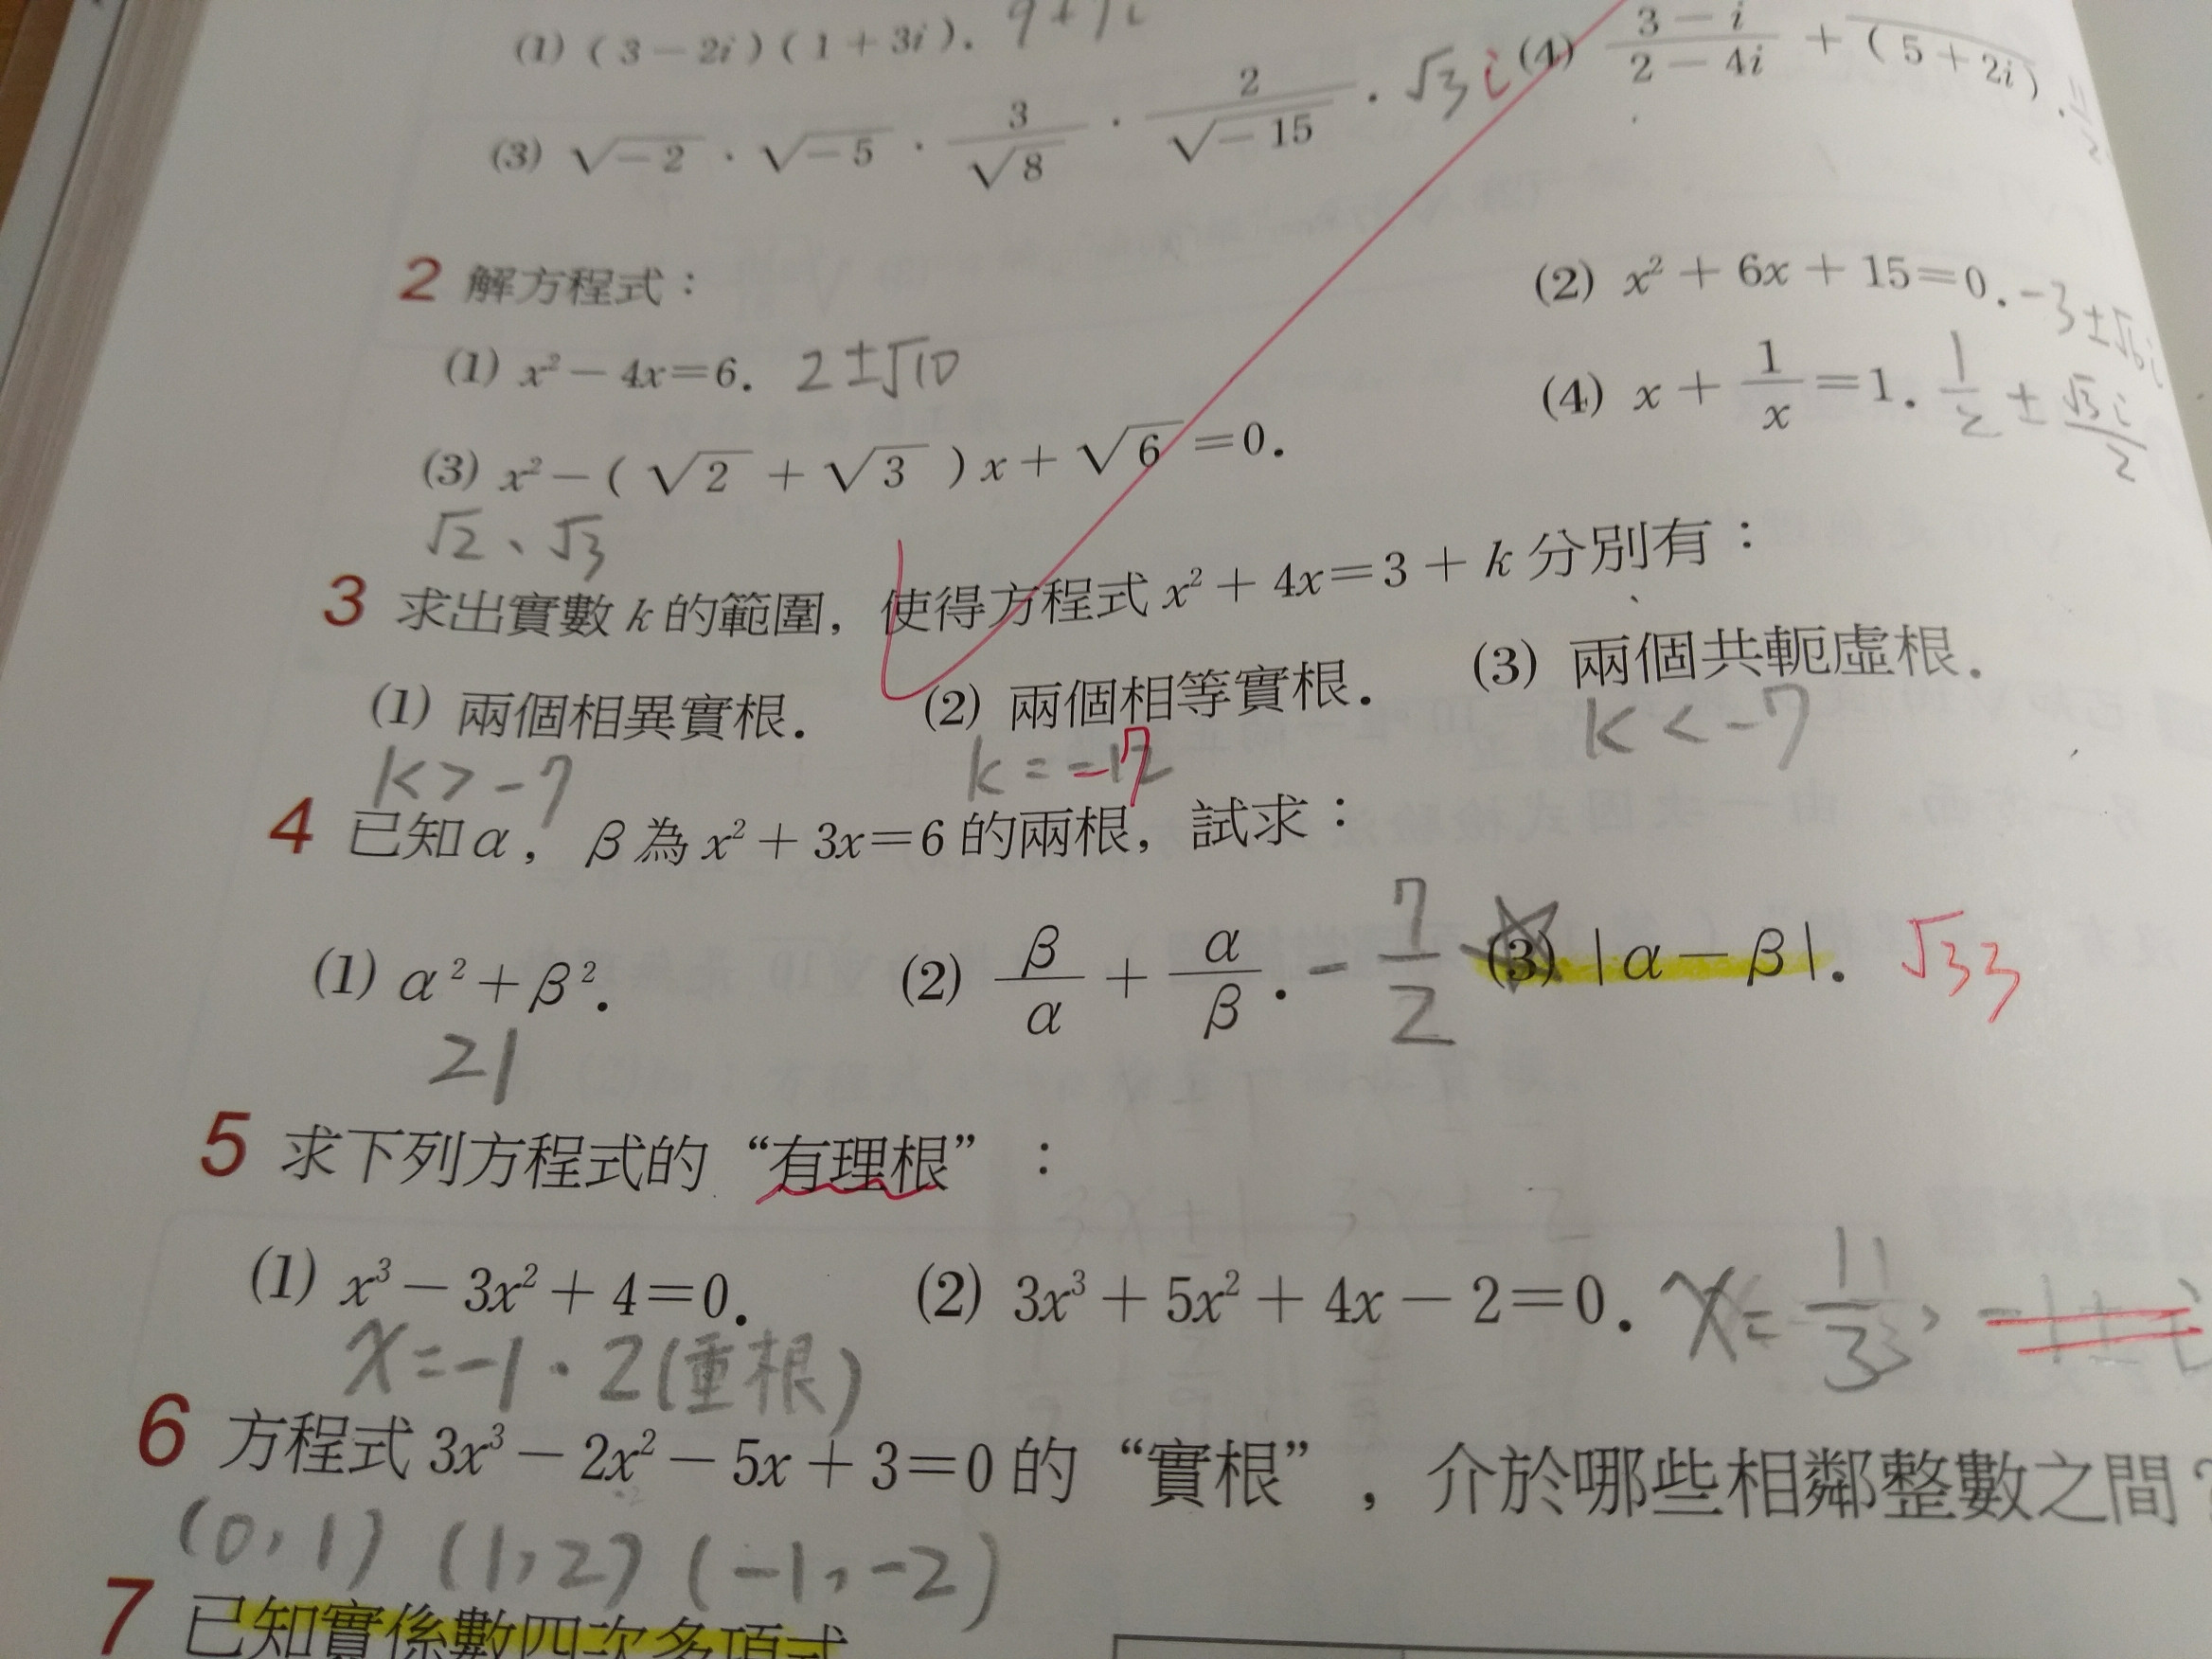 (1) (3－2i)(1＋3i). 9＋7i (4) \frac{3－i}{2－4i}＋\overline{(5＋2i)}.
(3) √-2 · √-5 · \frac{3}{√8} · \frac{2}{√-15} . √3 i
2 解方程式：
(1) x²－4x＝6. 2±√10 (2) x²＋6x＋15＝0. -3±√6i
(3) x²－(√2＋√3)x＋√6＝0. (4) x＋\frac{1}{x}＝1. \frac{1}{2} ± \frac{√3i}{2}
√2、√3
3 求出實數 k 的範圍，使得方程式 x²＋4x＝3＋k 分別有：
(1) 兩個相異實根. (2) 兩個相等實根. (3) 兩個共軛虛根.
k＞-7 k＝-7 k＜-7
4 已知 α，β 為 x²＋3x＝6 的兩根，試求：
(1) α²＋β². (2) \frac{β}{α}＋\frac{α}{β}. -\frac{7}{2} (3) |α－β|. √33
21
5 求下列方程式的“有理根”：
(1) x³－3x²＋4＝0. (2) 3x³＋5x²＋4x－2＝0. x＝ , -1±i
x＝-1 · 2(重根)
6 方程式 3x³－2x²－5x＋3＝0 的“實根”，介於哪些相鄰整數之間？
(0,1) (1,2) (-1,-2)
7 已知實係數四次多項式